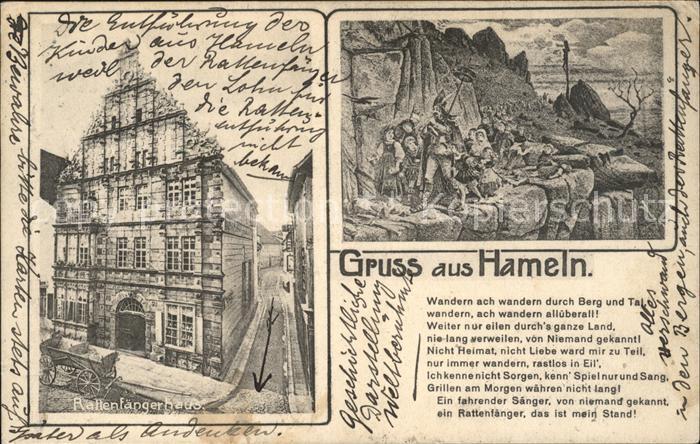 Die Entführung der
Kinder aus Hameln
weil der Rattenfänger
den Lohn für
die Ratten-
entführung
nicht
bekam
Bewahre bitte die Karten stets auf
später als Andenken.
Rattenfängerhaus.
Gruss aus Hameln.
Wandern ach wandern durch Berg und Tal,
wandern, ach wandern allüberall!
Weiter nur eilen durch's ganze Land,
nie lang verweilen, von Niemand gekannt!
Nicht Heimat, nicht Liebe ward mir zu Teil,
nur immer wandern, rastlos in Eil',
Ich kenne nicht Sorgen, kenn' Spiel nur und Sang,
Grillen am Morgen währen nicht lang!
Ein fahrender Sänger, von niemand gekannt,
ein Rattenfänger, das ist mein Stand!
Geschichtliche
Darstellung
weltberühmt
alles
verschwand
in den Bergen, auch der Rattenfänger
Kopierschutz